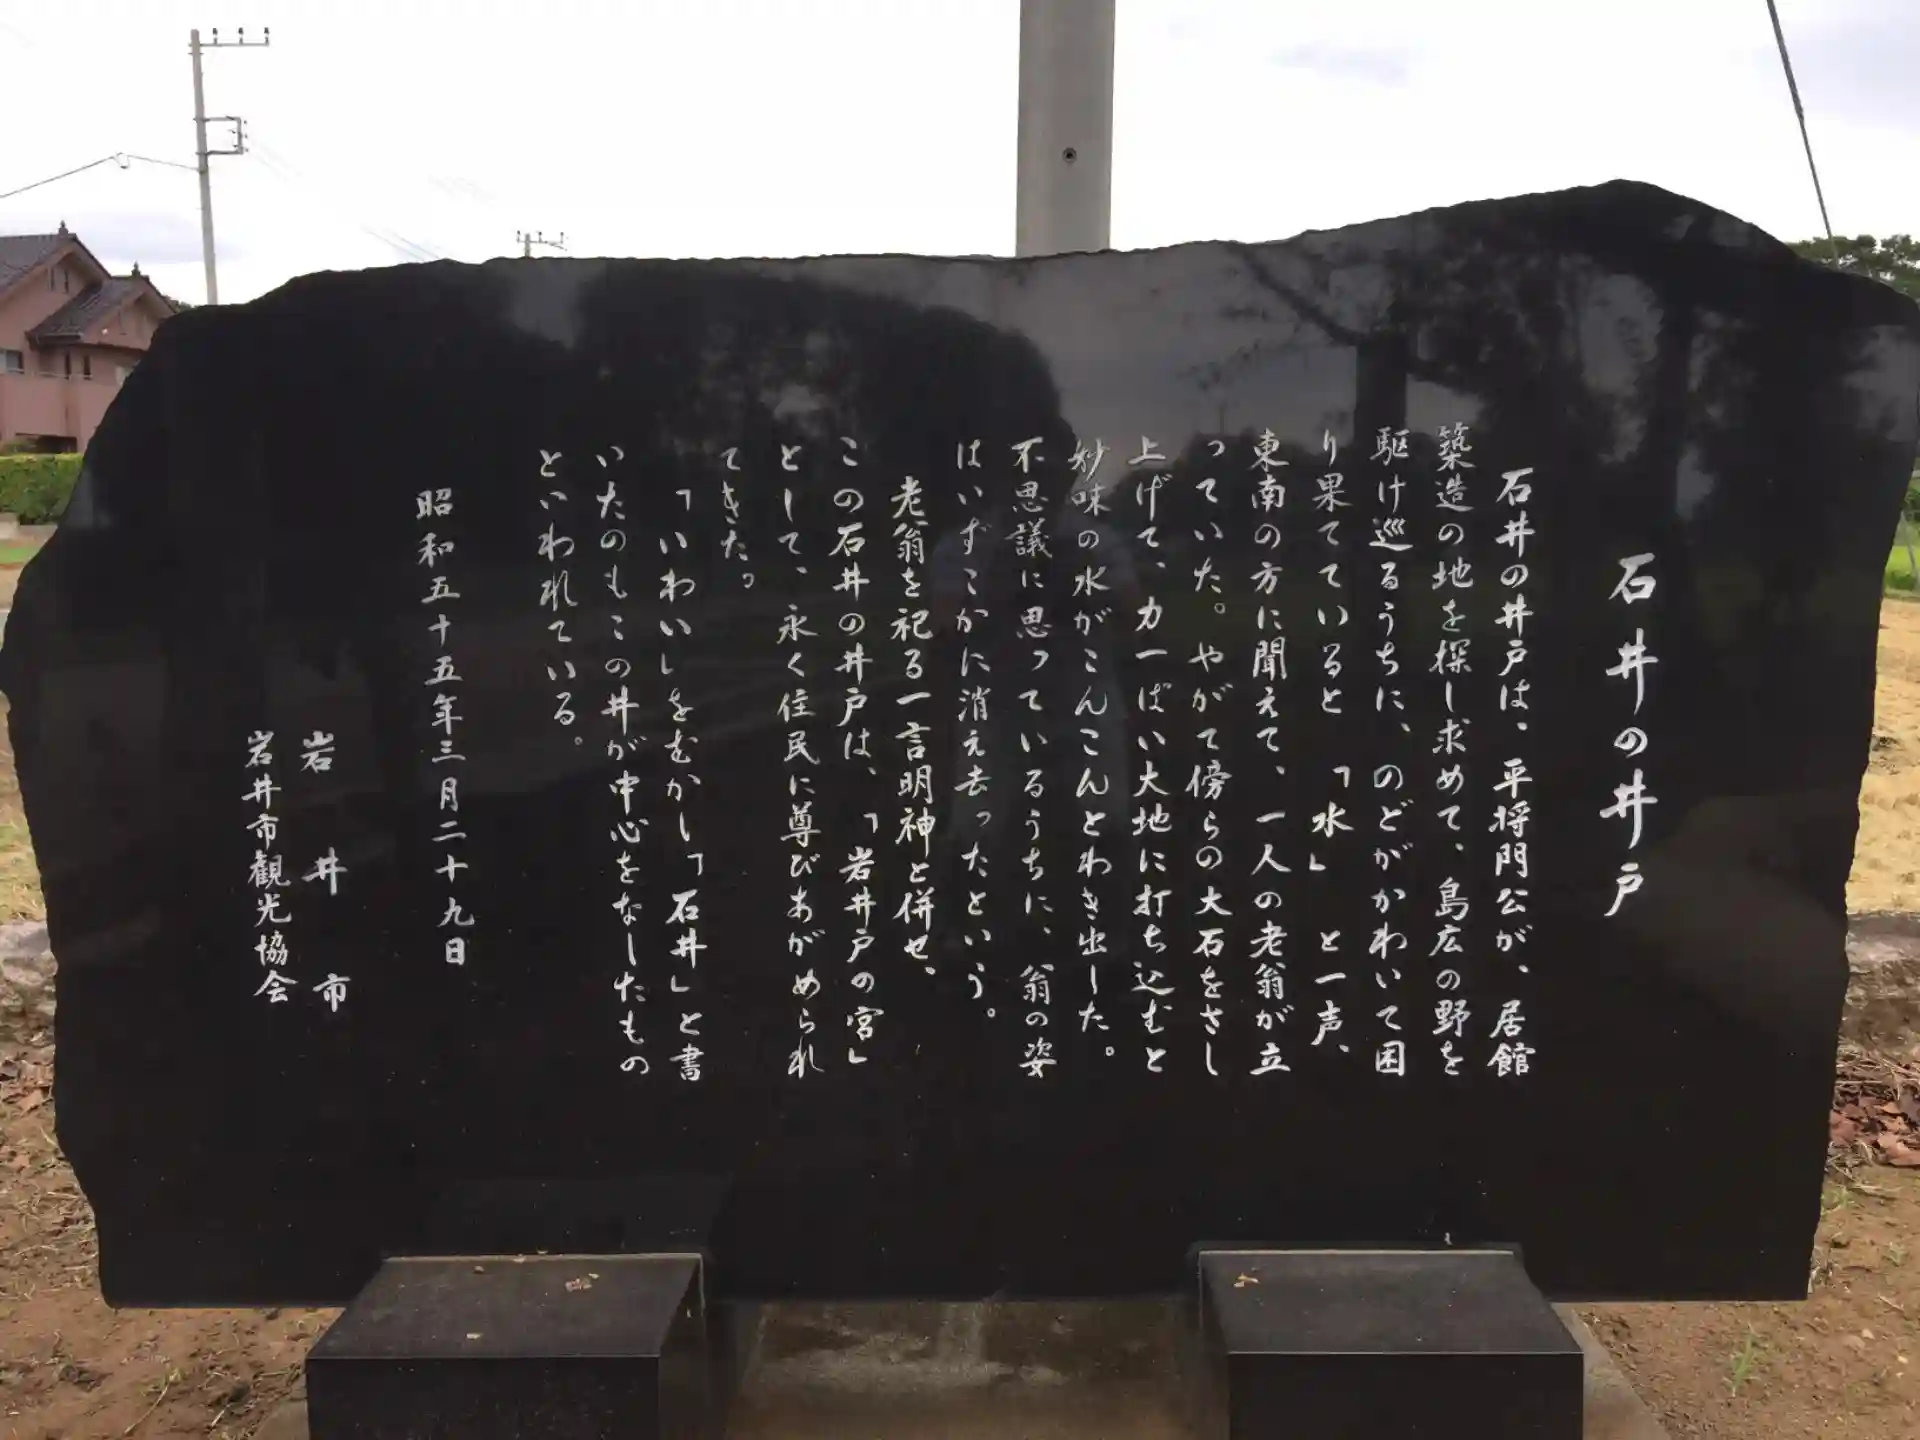 石井の井戸
石井の井戸は、平将門公が、居館
築造の地を探し求めて、島広の野を
駆け巡るうちに、のどがかわいて困
り果てていると「水」と一声、
東南の方に聞えて、一人の老翁が立
っていた。やがて傍らの大石をさし
上げて、力一ぱい大地に打ち込むと
妙味の水がこんこんとわき出した。
不思議に思っているうちに、翁の姿
はいずこかに消え去ったという。
老翁を祀る一言明神と併せ、
この石井の井戸は、「岩井戸の宮」
として、永く住民に尊びあがめられ
てきた。
「いわい」をむかし「石井」と書
いたのもこの井が中心をなしたもの
といわれている。
昭和五十五年三月二十九日
岩井市
岩井市観光協会